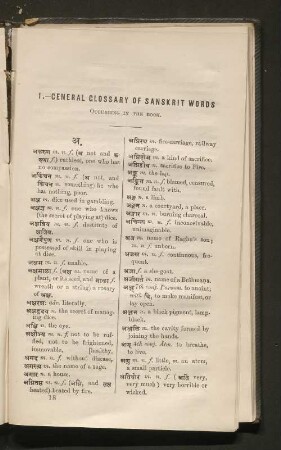 1.—GENERAL GLOSSARY OF SANSKRIT WORDS
OCCURRING IN THE BOOK.
अ.
m. n. f. (अ not and
f.) ruthless, one who has
no compassion.
अकिंचन m. n. f. (अ not, and
किंचन n. something) he who
has nothing, poor.
अक्ष m. dice used in gambling.
m. n. f. one who knows
(the secret of playing at) dice.
m. n. f. destitute of
m. n. f. one who is
possessed of skill in playing
at dice.
अक्षम m. n. f. unable.
अक्षमाला f. (अक्ष name of a
plant, or its seed, and माला f.
wreath or a string) a rosary
of अक्ष.
adv. literally.
m. the secret of manag-
ing dice.
अक्षि n. the eye.
m. n. f. not to be ruf-
fled, not to be frightened,
immovable, [healthy.
अगद m. n. f. without disease,
अगस्त्य m. the name of a sage.
अगार n. a house.
m. n. f. (अग्नि, and
heated) heated by fire.
18
m. fire-carriage, railway
carriage.
अग्निष्टोम m. a kind of sacrifice.
अग्निहोत्र n. Sacrifice to Fire.
अङ्क m. the lap.
अङ्कित m. n. f. blamed, censured,
found fault with.
अङ्ग n. a limb.
n. a courtyard, a place.
अङ्गार m. n. burning charcoal.
अचिन्त्य m. n. f. inconceivable,
unimaginable.
अज m. name of Raghu's son;
m. n. f. unborn.
अजस्र m. n. f. continuous, fre-
quent.
अजा f. a she goat.
m. name of a Brâhmaṇa.
7th conj. Parasm. to anoint;
with वि, to make manifest, or
lay open.
अञ्जन n. a black pigment, lamp-
black.
अञ्जलि m. the cavity formed by
joining the hands.
4th conj. Âtm. to breathe,
to live.
अणु m. n. f. little, m. an atom,
a small particle.
अतिघोर m. n. f. (अति very,
very much) very horrible or
wicked.